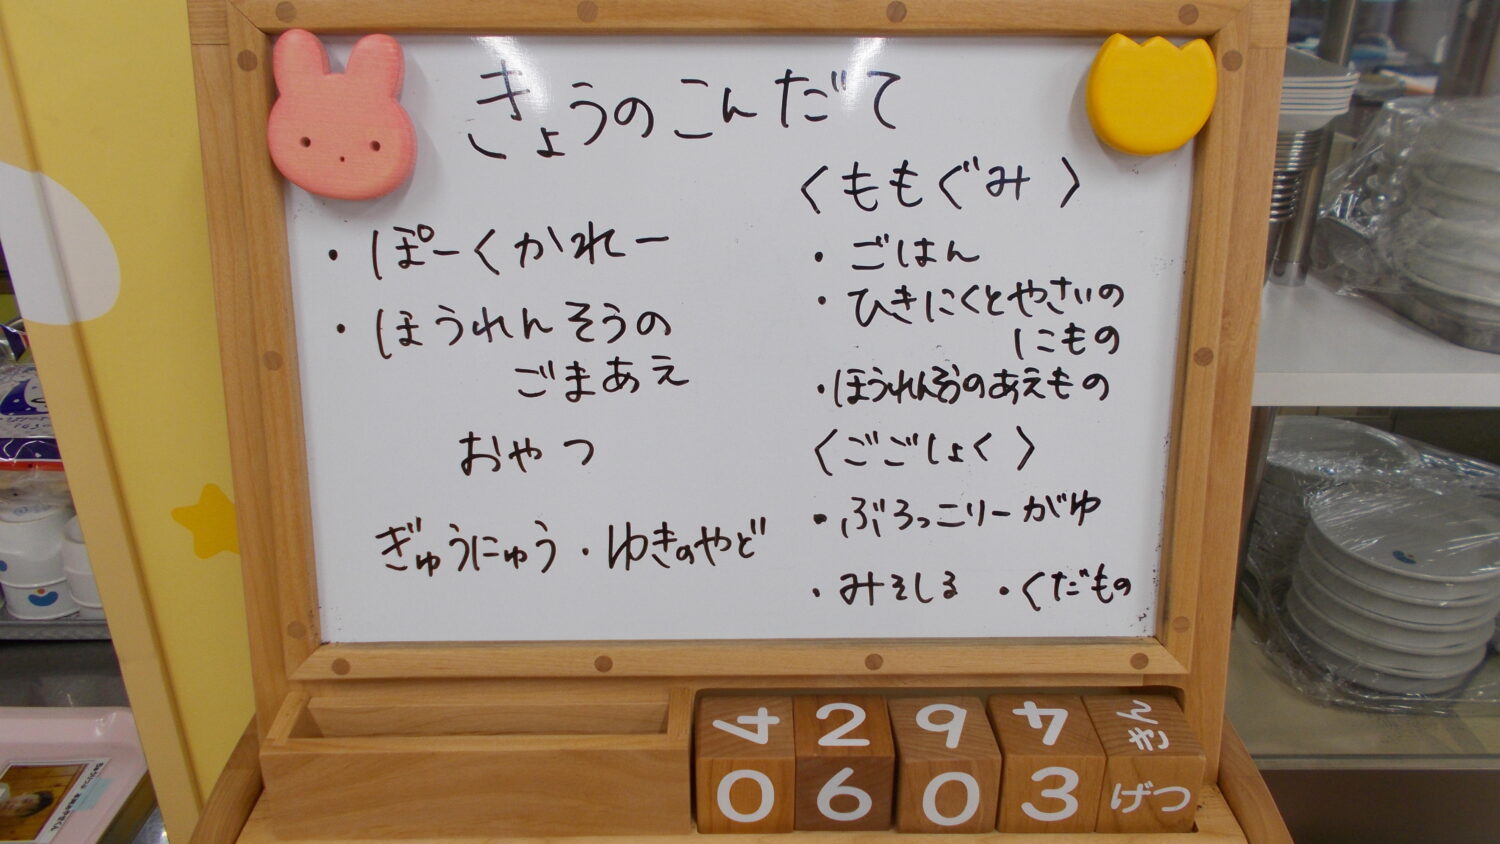 きょうのこんだて
・ぽーくかれー
・ほうれんそうの
ごまあえ
おやつ
ぎゅうにゅう・ゆきのやど
〈ももぐみ〉
・ごはん
・ひきにくとやさいの
にもの
・ほうれんそうのあえもの
〈ごごしょく〉
・ぶろっこりーがゆ
・みそしる ・くだもの
4 2 6 4 きん
0 6 0 3 げつ